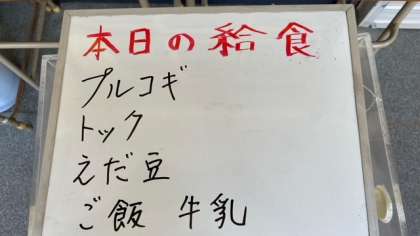 本日の給食
プルコギ
トック
えだ豆
ご飯 牛乳